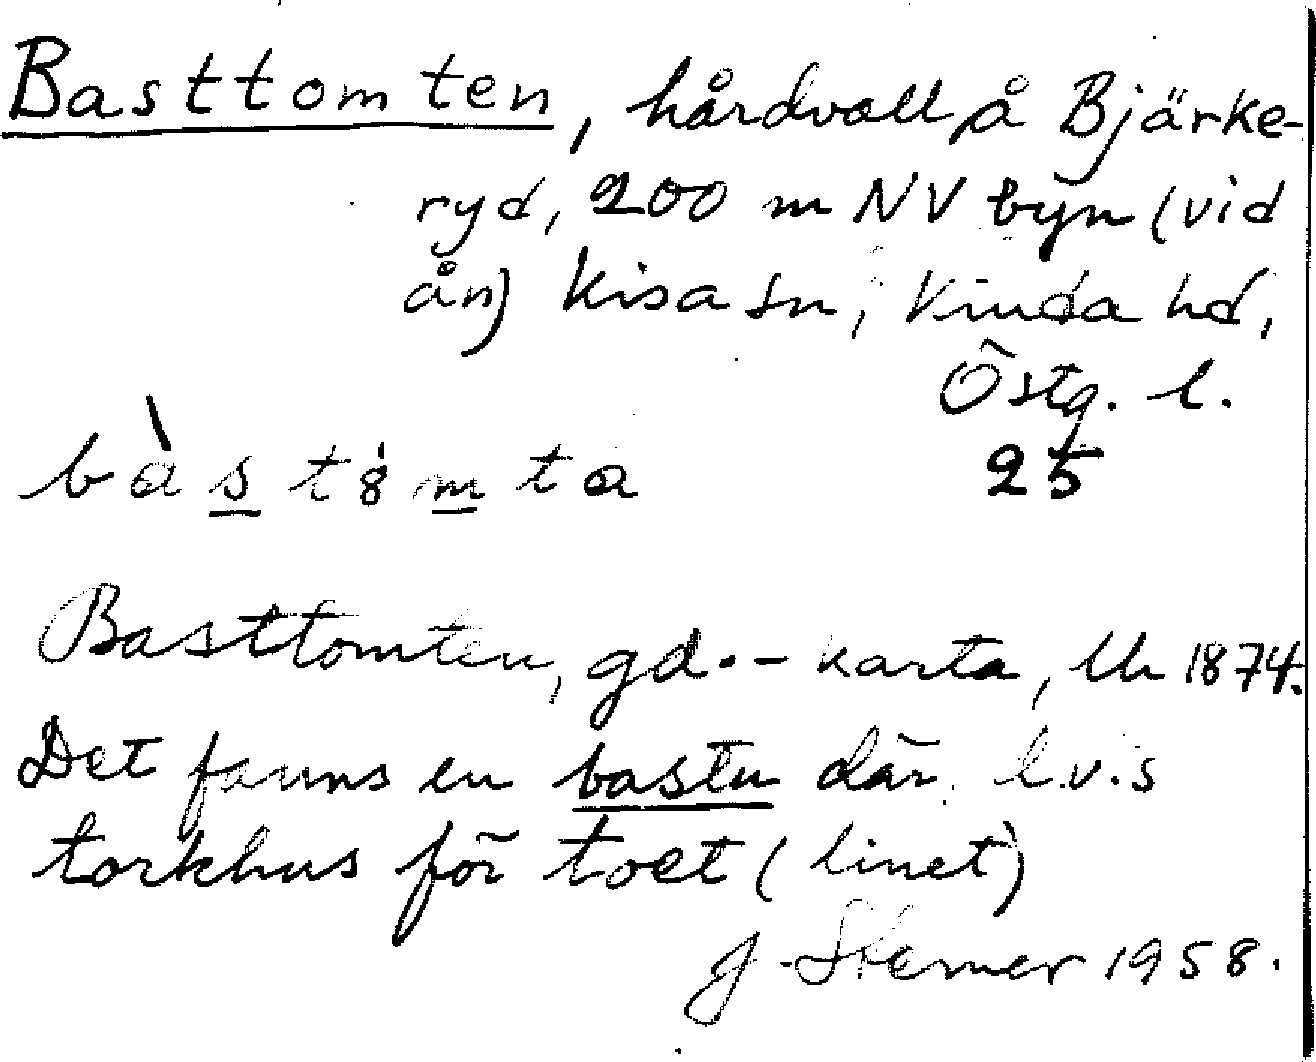 Basttomten, hårdvall på Bjärke-
ryd, 200 m NV byn (vid
ån) Kisa sn, Kinda hd,
Östg. l.
25
bàstȯmta
Basttomten, gd.-karta, Lk 1874.
Det fanns en bastu där. l.v.s
torkhus för toet (linet)
J. Sterner 1958.